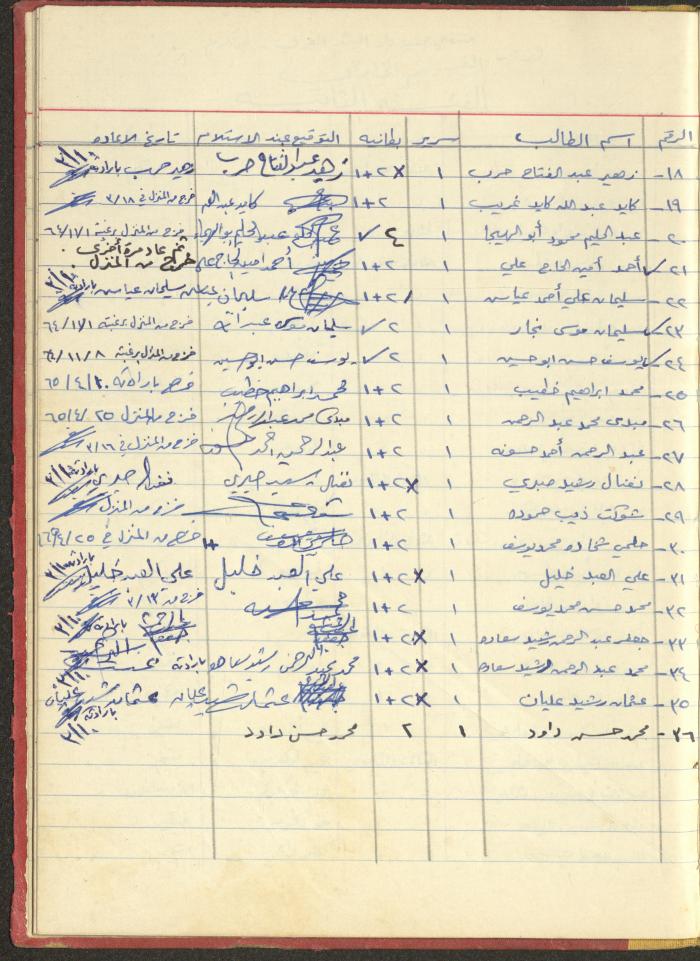 الرقم اسم الطالب سرير بطانيه التوقيع عند الاستلام تاريخ الاعاده
١٨- زهير عبد الفتاح حرب ١ ١+٢ X زهير عبد الفتاح حرب زهير حرب بارادته ٢/١٠
١٩- كايد عبد الله كايد غريب ١ ١+٢ كايد عبد الله خرج من المنزل في ٣/١٨
٢٠- عبد الحليم محمود أبو الهيجا ١ ٤ ✓ عبد الحليم ابو الهيجا خرج من المنزل برغبته ٦٤/١٢/١
٢١- ✓ أحمد أمين الحاج علي ١ ١+٢ أحمد امين الحاج علي ثم عاد مرة أخرى . خرج من المنزل
٢٢- سليمان علي أحمد عباس ١ ١+٢ / سليمان عباس سليمان عباس بارادته ٢/١٠
٢٣- ✓ سليمان موسى نجار ١ ٢ ✓ سليمان موسى خرج من المنزل برغبته ٦٤/١٢/١
٢٤- ✓ يوسف حسن ابو حسين ١ ٢ ✓ يوسف حسن ابو حسين خرج من المنزل برغبته ٦٤/١١/٨
٢٥- محمد ابراهيم خطيب ١ ١+٢ محمد ابراهيم خطيب خرج بارادته ٦٥/٤/٢٠
٢٦- مبدى محمد عبد الرحمن ١ ١+٢ مبدى محمد عبد الرحمن خرج من المنزل ٦٥/٤/٢٥
٢٧- عبد الرحمن أحمد حسونه ١ ١+٢ عبد الرحمن احمد خرج من المنزل في ٣/١٦
٢٨- نضال رشيد صبري ١ ١+٢ X نضال رشيد صبري نضال صبري بارادته ٢/١٠
٢٩- شوكت ذيب حموده ١ ١+٢ خرج من المنزل
٣٠- حلمي شحاده محمد يوسف ١ ١+٢ خرج من المنزل في ٤/٢٥
٣١- علي العبد خليل ١ ١+٢ X علي العبد خليل علي العبد خليل بارادته ٢/١٠
٣٢- محمد حسن محمد يوسف ١ ١+٢ خرج من ٣/١٣
٣٣- جعفر عبد الرحمن رشيد سعاده ١ ١+٢ X جعفر بارادته ٢/١٠
٣٤- محمد عبد الرحمن رشيد سعاده ١ ١+٢ X محمد عبد الرحمن رشيد سعاده بارادته ٢/١٠
٣٥- عثمان رشيد عليان ١ ١+٢ X عثمان رشيد عليان عثمان رشيد عليان بارادته ٢/١٠
٣٦- محمد حسن داود ١ ٢ محمد حسن داود